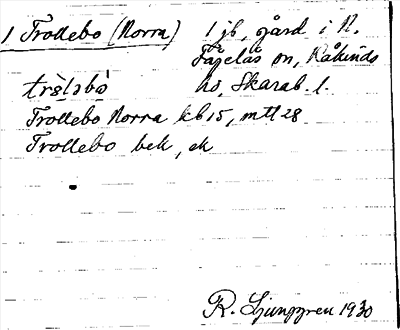 1 Trollebo (Norra) 1 jb, gård i N.
Fågelås sn, Kåkinds
trɵ̀lɔbò hd, Skarab. l.
Trollebo Norra kb 15, mtl 28
Trollebo bek, ek
R. Ljunggren 1930